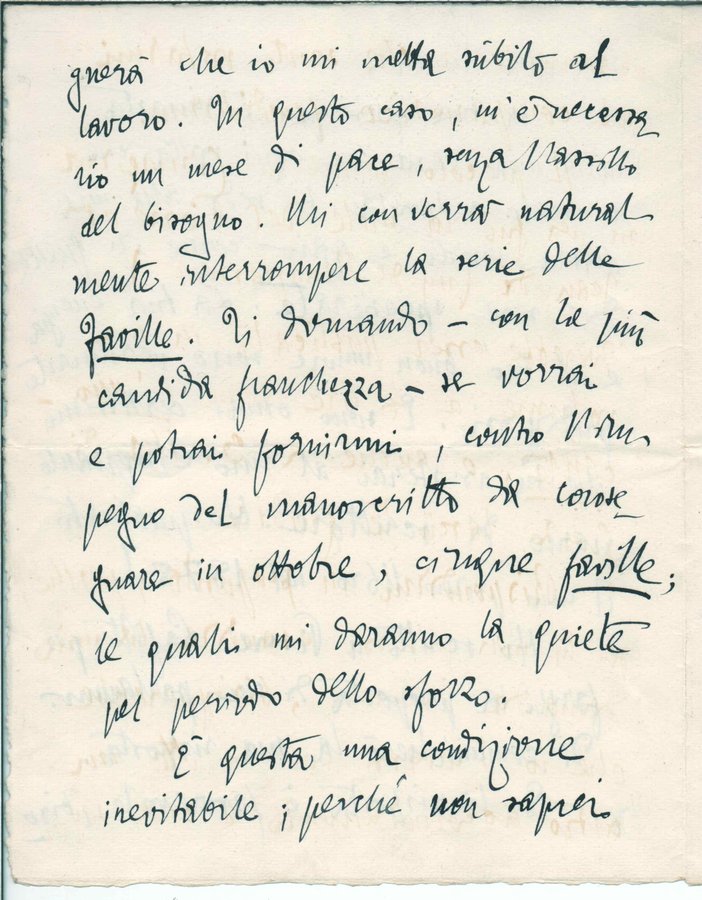 gnerà che io mi metta sùbito al
lavoro. In questo caso, mi è necessa
rio un mese di pace, senza l'assillo
del bisogno. Mi converrà natural
mente interrompere la serie delle
Faville. Ti domando – con la più
candida franchezza – se vorrai
e potrai fornirmi, contro l'im-
pegno del manoscritto da conse
gnare in ottobre, cinque faville;
le quali mi daranno la quiete
pel periodo dello sforzo.
È questa una condizione
inevitabile; perché non saprei